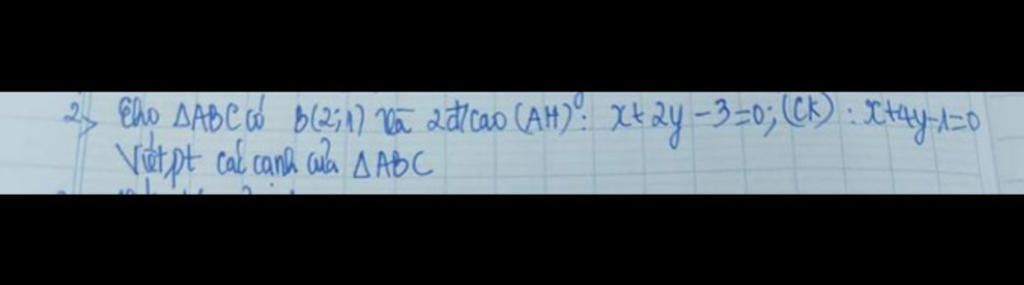 2> Cho ΔABC có B(2;1) và 2 đ/cao (AH): x+2y-3=0; (CK): x+4y-1=0
Viết pt các cạnh của ΔABC